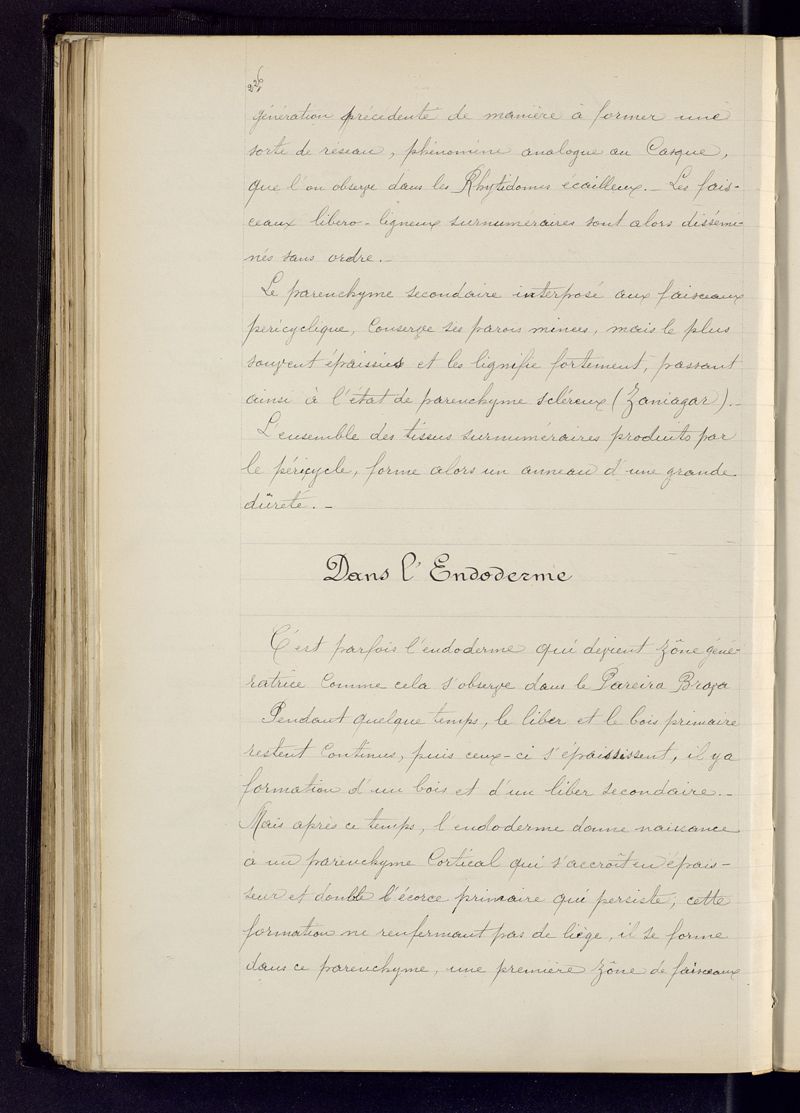 226
génération précédente de manière à former une
sorte de réseau, phénomène analogue au Casque,
que l'on observe dans les Rhytidomes écailleux._ Les fais-
ceaux libero-ligneux surnuméraires sont alors dissémi-
nés sans ordre._
Le parenchyme secondaire interposé aux faisceaux
péricyclique, Conserve ses parois minces, mais le plus
souvent épaissies et les lignifie fortement, passant
ainsi à l'état de parenchyme scléreux (Zaniagar)._
L'ensemble des tissus surnuméraires produits par
le péricycle, forme alors un anneau d'une grande
dûreté._
Dans l'Endoderme
C'est parfois l'endoderme qui devient zône géné-
ratrice Comme cela s'observe dans le Pareira Brava
Pendant quelque temps, le liber et le bois primaire
restent Continus, puis ceux-ci s'épaississent, il y a
formation d'un bois et d'un liber secondaire._
Mais après ce temps, l'endoderme donne naissance
à un parenchyme Cortical qui s'accroît en épais-
seur et double l'écorce primaire qui persiste, cette
formation ne renfermant pas de liège, il se forme
dans ce parenchyme, une première zône de faisceaux